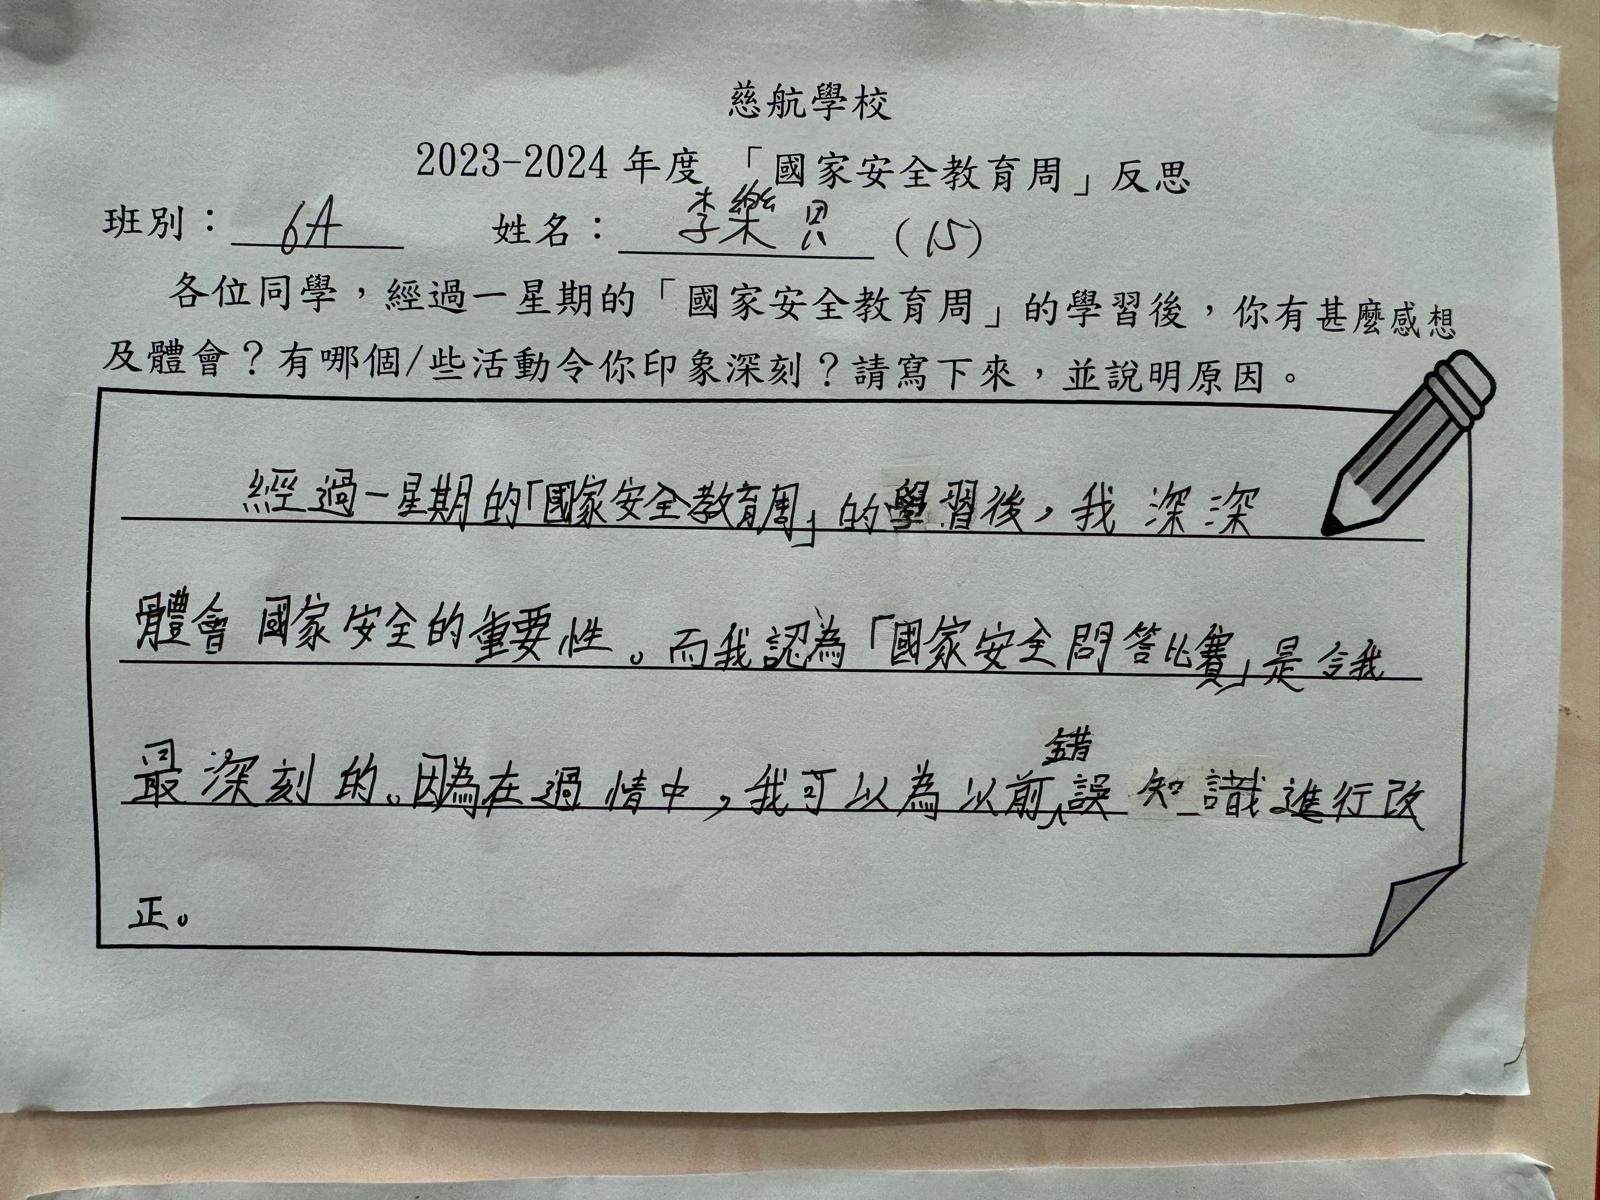 慈航學校
2023-2024 年度 「國家安全教育周」反思
班別：6A 姓名：李樂 (15)
各位同學，經過一星期的「國家安全教育周」的學習後，你有甚麼感想
及體會？有哪個/些活動令你印象深刻？請寫下來，並說明原因。
經過一星期的「國家安全教育周」的學習後，我深深
體會國家安全的重要性。而我認為「國家安全問答比賽」是令我
最深刻的。因為在過情中，我可以為以前錯誤知識進行改
正。